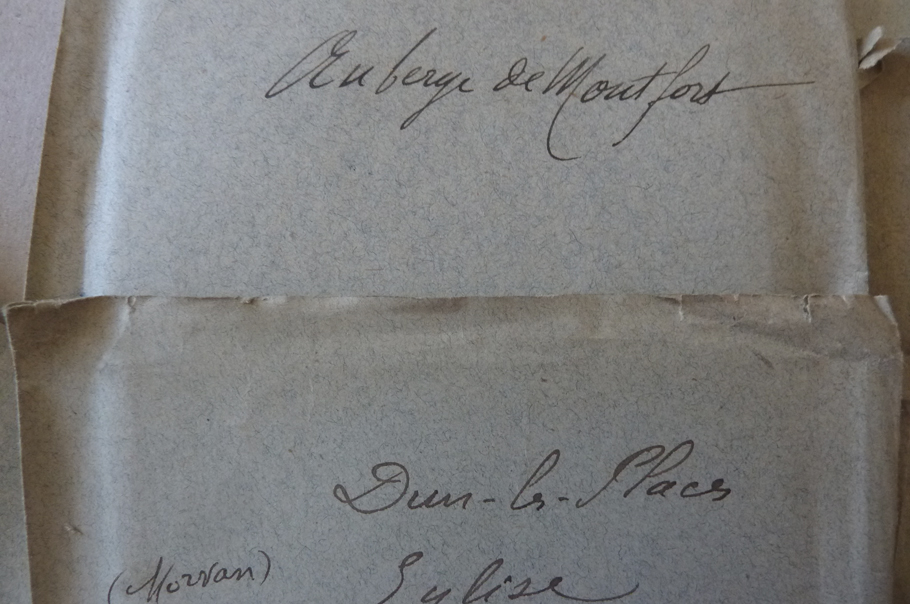 Auberge de Montfort
Dun-les-Places
(Morvan) Eglise